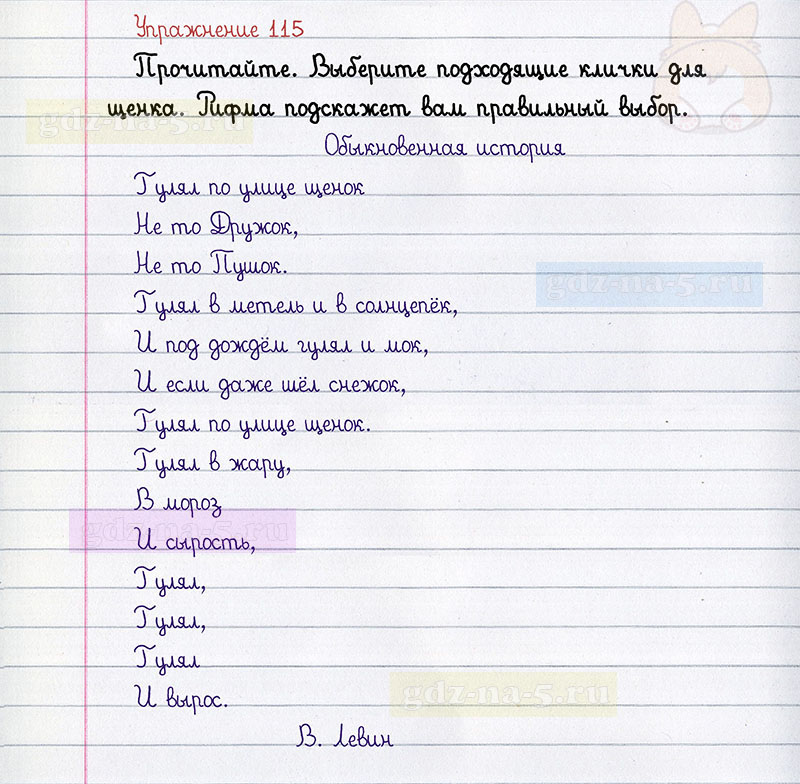 Упражнение 115
Прочитайте. Выберите подходящие клички для
щенка. Рифма подскажет вам правильный выбор.
gdz-na-5.ru
Обыкновенная история
Гулял по улице щенок
Не то Дружок,
Не то Пушок.
gdz-na-5.ru
Гулял в метель и в солнцепёк,
И под дождём гулял и мок,
И если даже шёл снежок,
Гулял по улице щенок.
Гулял в жару,
В мороз
gdz-na-5.ru
И сырость,
Гулял,
Гулял,
Гулял
И вырос.
gdz-na-5.ru
В. Левин